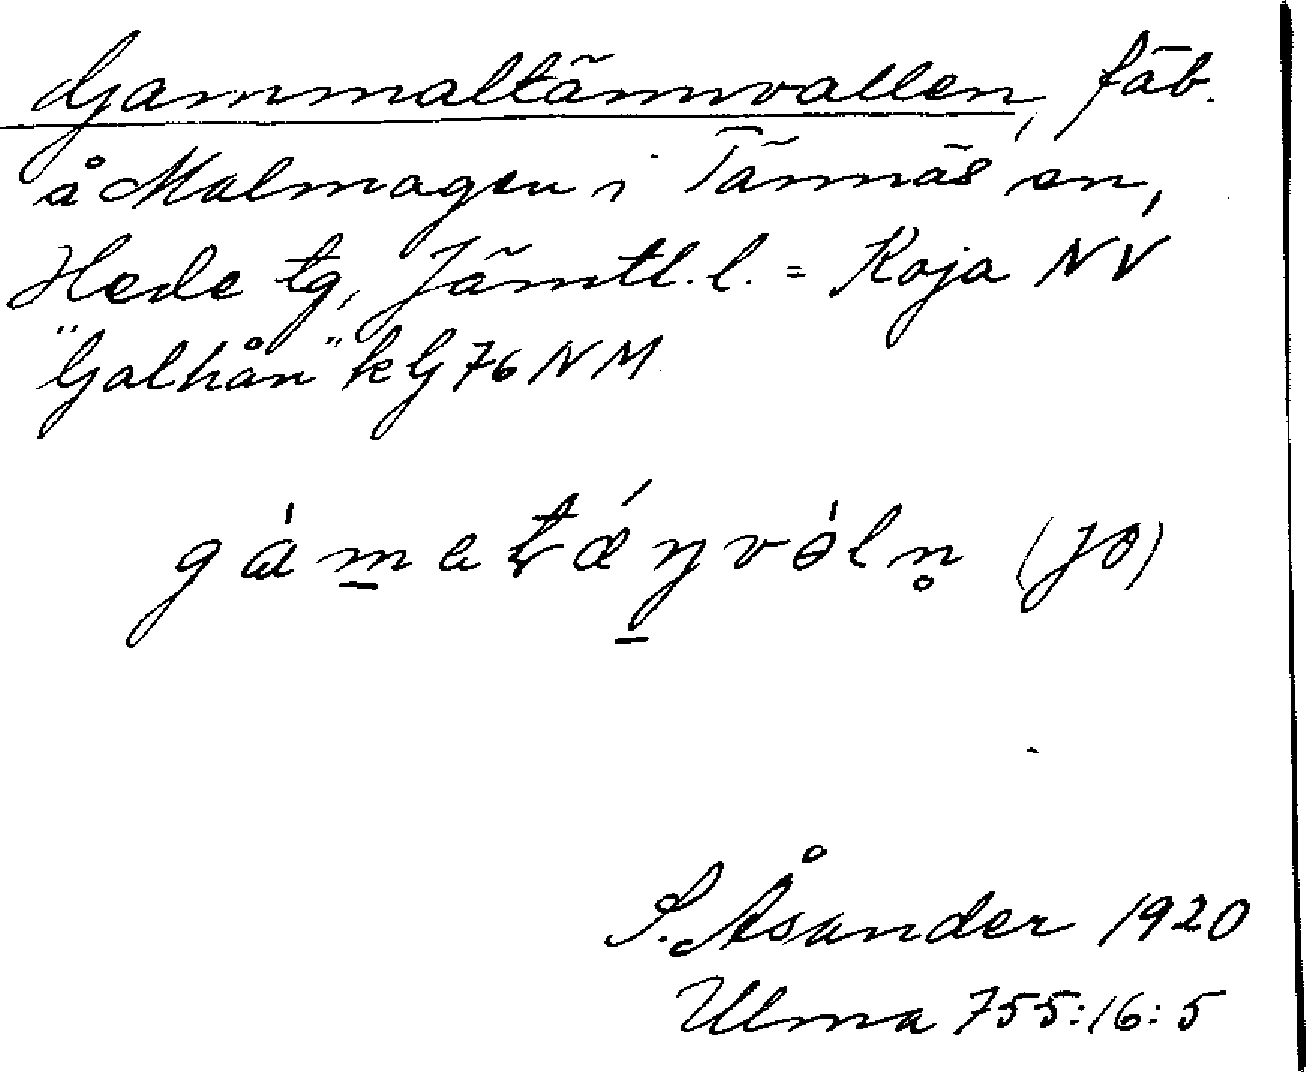 Gammaltännvallen, fäb.
å Malmagen i Tännäs sn,
Hede tg, Jämtl. l. = Koja NV
"Galhån" kG 76 NM
gàmatáŋvàln̥ (JO)
S. Åsander 1920
Ulma 755:16:5